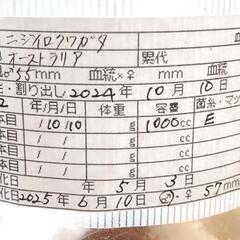 ニジイロクワガタ
オーストラリア 累代
55mm 血統×♀ mm 血統
・割り出し 2024年10月10日
2 年/月/日 体重 容量 菌糸・マッ
1目 /10/10 g 1000cc E
2目 / / g cc
3目 / / g cc
化日 年 5月 3日
化日 2025年 6月 10日 ♂・♀ 57mm